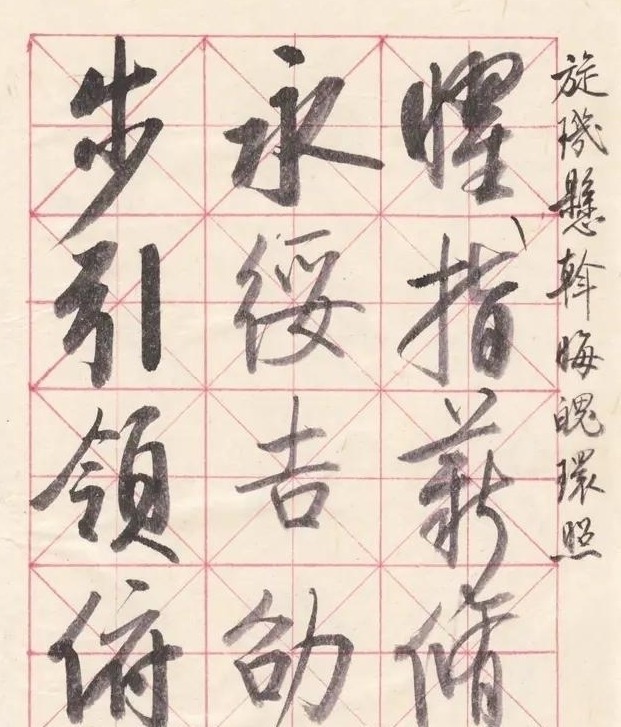 旋璣懸斡晦魄環照
耀指薪脩
永綏吉劭
步引領俯